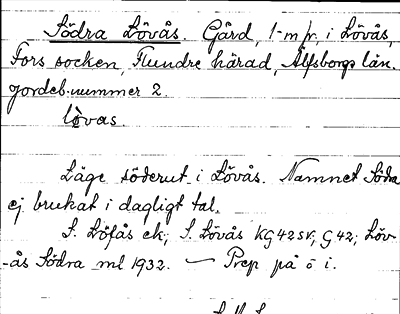 Södra Lövås. Gård, 1 mfr, i Lövås,
Fors socken, Flundre härad, Älfsborgs län.
Jordeb.nummer 2.
lòvas
Läge söderut i Lövås. Namnet Södra
ej brukat i dagligt tal.
S. Löfås ek; S. Lövås KG42SV; G42; Löv-
-ås Södra ml 1932. — Prep på ō i.